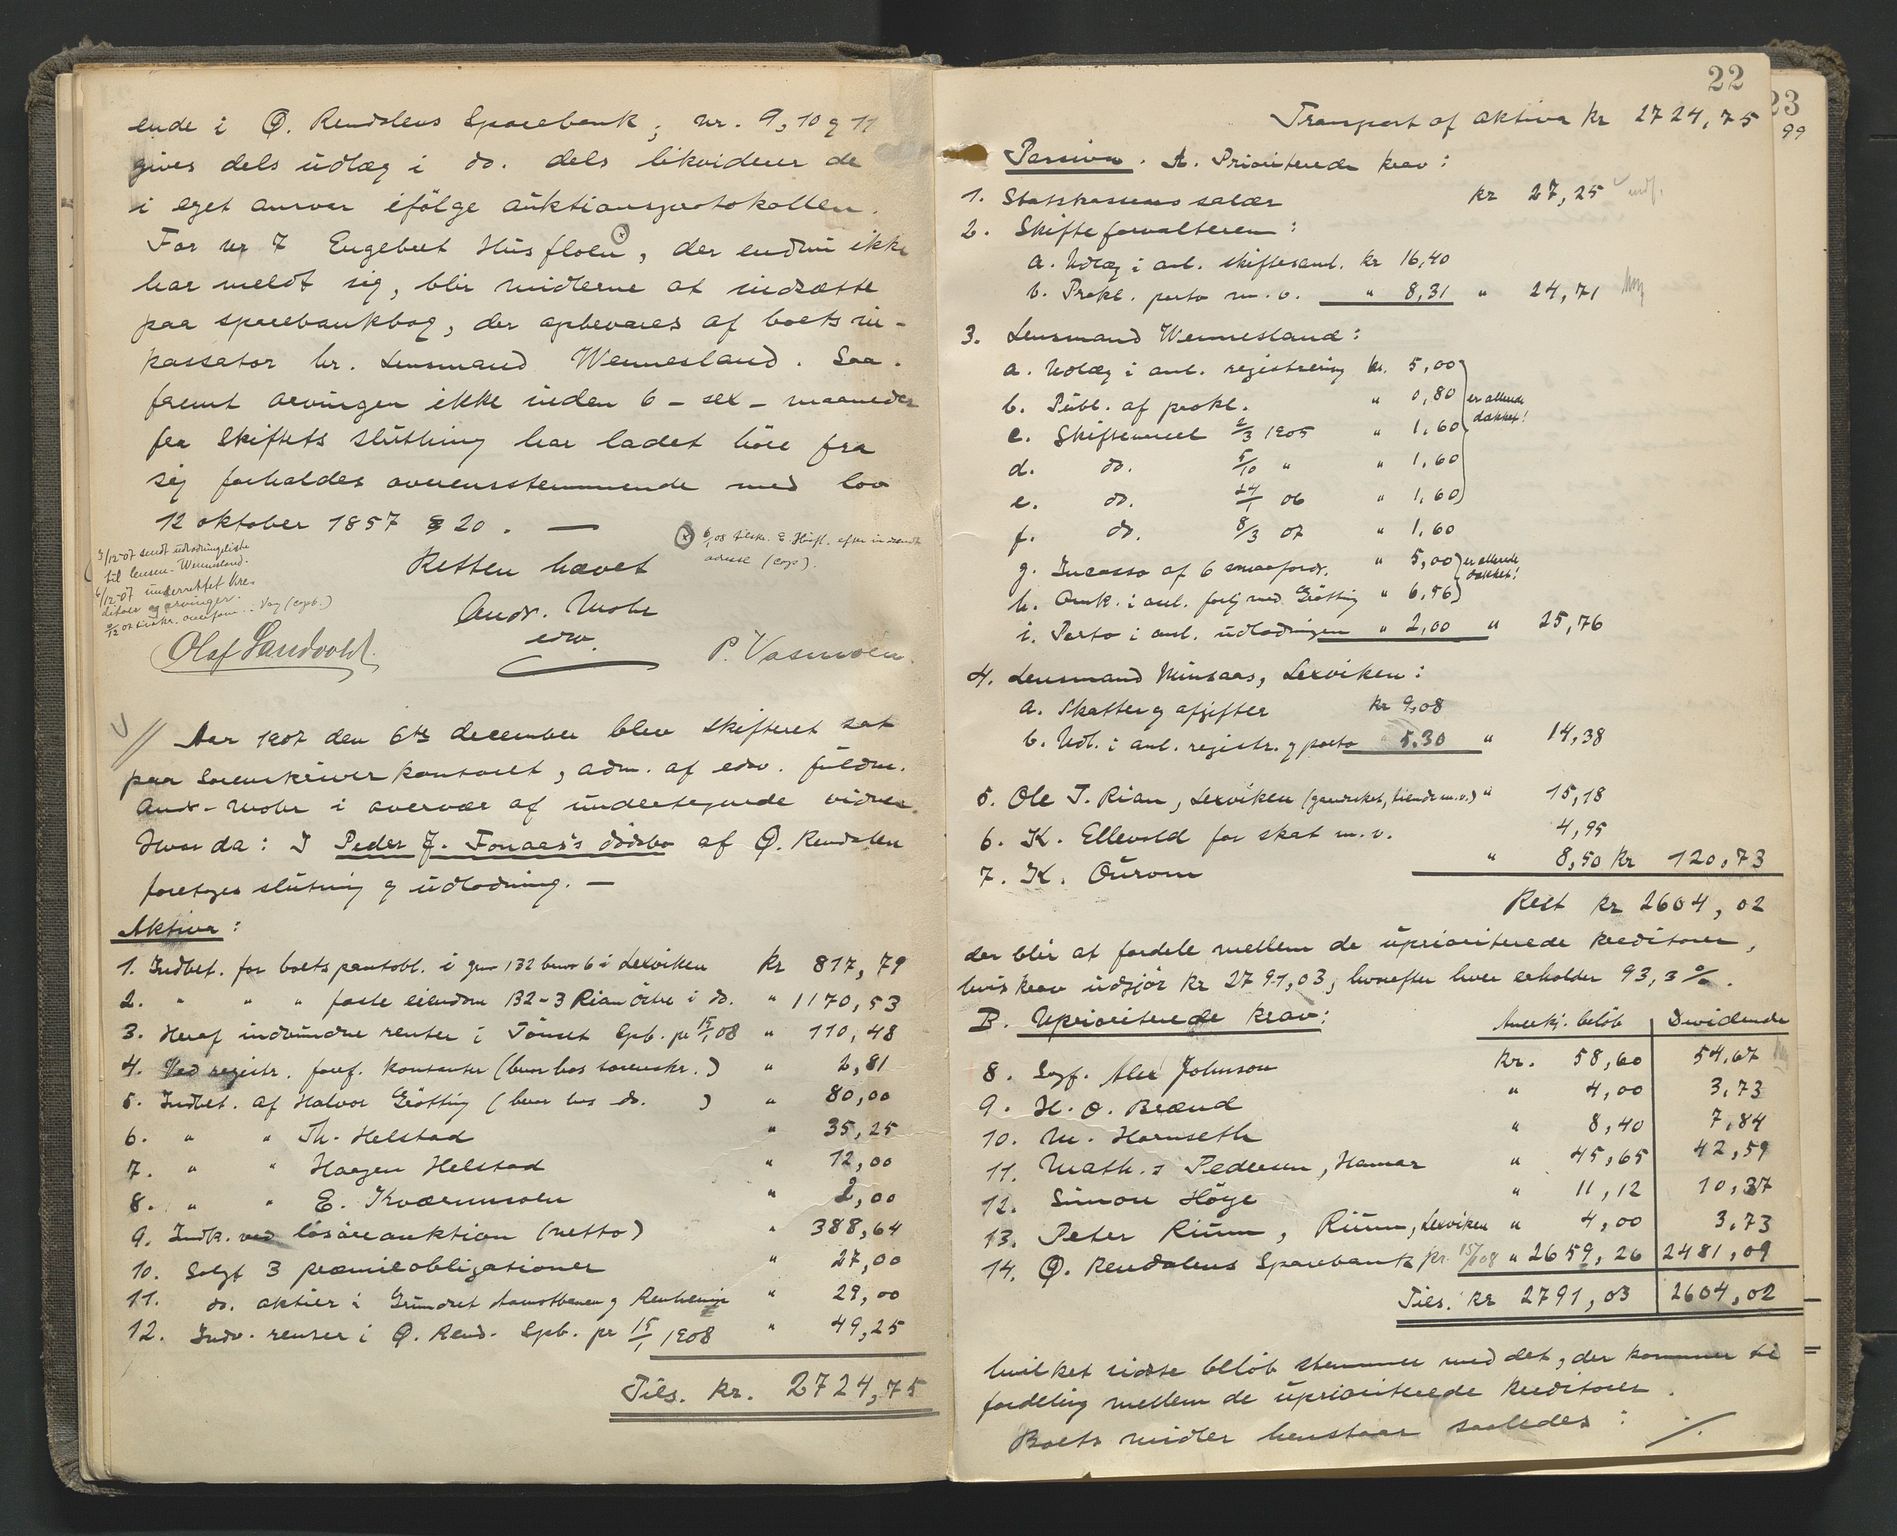 ende i Ø. Rendalens Sparebank; nr. 9, 10 og 11
gives dels udlæg i do. dels likviderer de
i eget ansvar ifølge auktionsprotokollen.
For nr 7 Engebret Husfloen, der endnu ikke
har meldt sig, blir midlerne at indsætte
paa sparebankbog, der opbevares af boets in-
kassator hr. Lensmand Wennesland. Saa-
fremt arvingen ikke inden 6 - sex - maaneder
fra skiftets slutning har ladet høre fra
sig forholdes overensstemmende med lov
12 oktober 1857 § 20. —
3/12-07 sendt udlodningsliste
til lensm. Wennesland.
6/12-07 underrettet kre-
ditorer og arvinger.
6/1 08 tilskr. E. Husfl. efter indsendt
adresse (cop).
Retten hævet
Andr. Mohr
edsv.
Olaf Sandvold.
P. Vasmoen.
Aar 1907 den 6te december blev skifteret sat
paa sorenskriverkontoret, adm. af edsv. fuldm.
Andr. Mohr i overvær af undertegnede vidner.
Hvorda: I Peder J. Fonaas's dødsbo af Ø. Rendalen
foretages slutning og udlodning. —
Aktiva:
1. Indbet. for boets pantobl. i gnr 132 bnr 6 i Lexviken kr 817,79
2. " " " faste eiendom 132-3 Rian østre i do. " 1170,53
3. Heraf indvundne renter i Tønset Spb. pr 15/1 08 " 110,48
4. Ved registr. foref. kontanter (beror hos sorenskr.) " 2,81
5. Indbet. af Halvor Grøtting (beror hos do. ) " 80,00
6. " " Th. Helstad " 35,25
7. " " Haagen Helstad " 12,00
8. " " E. Kværnmoen " 2,00
9. Indk. ved løsøreauktion (netto) " 388,64
10. Solgt 3 præmieobligationer " 27,00
11. do. aktier i Grundset Aamotbanen og Renhenije " 29,00
12. Indv. renter i Ø. Rend. Spb. pr 15/1 1908 " 49,25
Tils. kr. 2724,75
22
23
99
Transport af aktiva kr 2724,75
Passiva. A. Prioriterede krav:
1. Statskassens salær kr 27,25 udf.
2. Skifteforvalteren:
a. Udlæg i anl. skiftesaml. kr 16,40
b. Prokl. porto m.v. " 8,31 " 24,71
3. Lensmand Wennesland:
a. Udlæg i anl. registrering kr. 5,00
b. Publ. af prokl. " 0,80 er allerede dækket!
c. Skiftevarsel 2/3 1905 " 1,60
d. do. 5/10 " " 1,60
e. do. 24/1 06 " 1,60
f. do. 8/3 07 " 1,60
g. Incasso af 6 smaafordr. " 5,00 er allerede dækket!
h. Omk. i anl. forlig med Grøtting " 6,56
i. Porto i anl. udlodningen " 2,00 " 25,76
4. Lensmand Minsaas, Lexviken:
a. Skatter og afgifter kr 9,08
b. Udl. i anl. registr. og porto 5.30 " 14,38
5. Ole T. Rian, Lexviken (gaardsket, tiende m.v.) " 15,18
6. K. Ellevold for skat m.v. 4,95
7. K. Øurom " 8,50 kr 120,73
Rest kr 2604,02
der blir at fordele mellem de uprioriterede kreditorer,
hvis krav udgjør kr 2791,03, hvorefter hver erholder 93,3 %.
B. Uprioriterede krav: Anerkj. beløb Dividende
8. Sagf. Alex Johnson kr. 58,60 54,67
9. H. O. Brænd " 4,00 3,73
10. M. Harnseth " 8,40 7,84
11. Math.s Pedersen, Hamar " 45,65 42,59
12. Simon Høye " 11,12 10,37
13. Peter Rium, Rium, Lexviken " 4,00 3,73
14. Ø. Rendalens Sparebank pr 15/1 08 " 2659,26 2481,09
Tils. kr 2791,03 2604,02
hvilket sidste beløb stemmer med det, der kommer til
fordeling mellem de uprioriterede kreditorer.
Boets midler henstaar saaledes: ./.